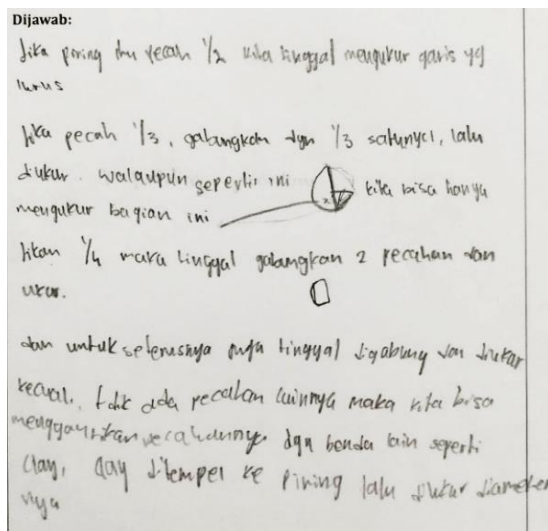 Dijawab:
Jika piring itu pecah 1/2 kita tinggal mengukur garis yg
lurus
Jika pecah 1/3, gabungkan dgn 1/3 satunya, lalu
diukur. walaupun seperti ini kita bisa hanya
mengukur bagian ini
1/4 maka tinggal gabungkan 2 pecahan dan
ukur.
dan untuk seterusnya juga tinggal digabung dan diukur
kecuali, tdk ada pecahan lainnya maka kita bisa
menggantikan pecahannya dgn benda lain seperti
clay, clay ditempel ke piring lalu diukur diameter
nya